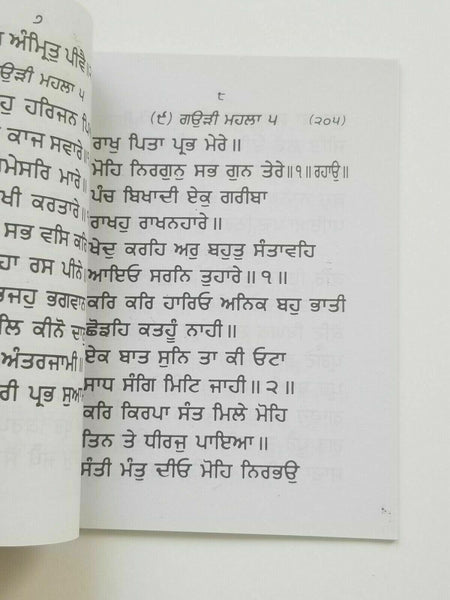 ੭
ਅੰਮ੍ਰਿਤੁ ਪੀਵੈ॥
ਮਹਲਾ ੫
ਹਰਿਜਨ
ਕਾਜ ਸਵਾਰੇ॥
ਮਾਰੇ॥
ਕਰਤਾਰੇ॥
ਸਭ ਵਸਿ
ਰਸ ਪੀਨੇ
ਭਗਵਾਨ
ਕੀਨੋ
ਅੰਤਰਜਾਮੀ॥
ਪ੍ਰਭ
੮
(੯) ਗਉੜੀ ਮਹਲਾ ੫ (੨੦੫)
ਰਾਖੁ ਪਿਤਾ ਪ੍ਰਭ ਮੇਰੇ॥
ਮੋਹਿ ਨਿਰਗੁਨੁ ਸਭ ਗੁਨ ਤੇਰੇ॥੧॥ਰਹਾਉ॥
ਪੰਚ ਬਿਖਾਦੀ ਏਕੁ ਗਰੀਬਾ
ਰਾਖਹੁ ਰਾਖਨਹਾਰੇ॥
ਖੇਦੁ ਕਰਹਿ ਅਰੁ ਬਹੁਤੁ ਸੰਤਾਵਹਿ
ਆਇਓ ਸਰਨਿ ਤੁਹਾਰੇ॥੧॥
ਕਰਿ ਕਰਿ ਹਾਰਿਓ ਅਨਿਕ ਬਹੁ ਭਾਤੀ
ਛੋਡਹਿ ਕਤਹੂੰ ਨਾਹੀ॥
ਏਕ ਬਾਤ ਸੁਨਿ ਤਾ ਕੀ ਓਟਾ
ਸਾਧ ਸੰਗਿ ਮਿਟਿ ਜਾਹੀ॥੨॥
ਕਰਿ ਕਿਰਪਾ ਸੰਤ ਮਿਲੇ ਮੋਹਿ
ਤਿਨ ਤੇ ਧੀਰਜੁ ਪਾਇਆ॥
ਸੰਤੀ ਮੰਤੁ ਦੀਓ ਮੋਹਿ ਨਿਰਭਉ